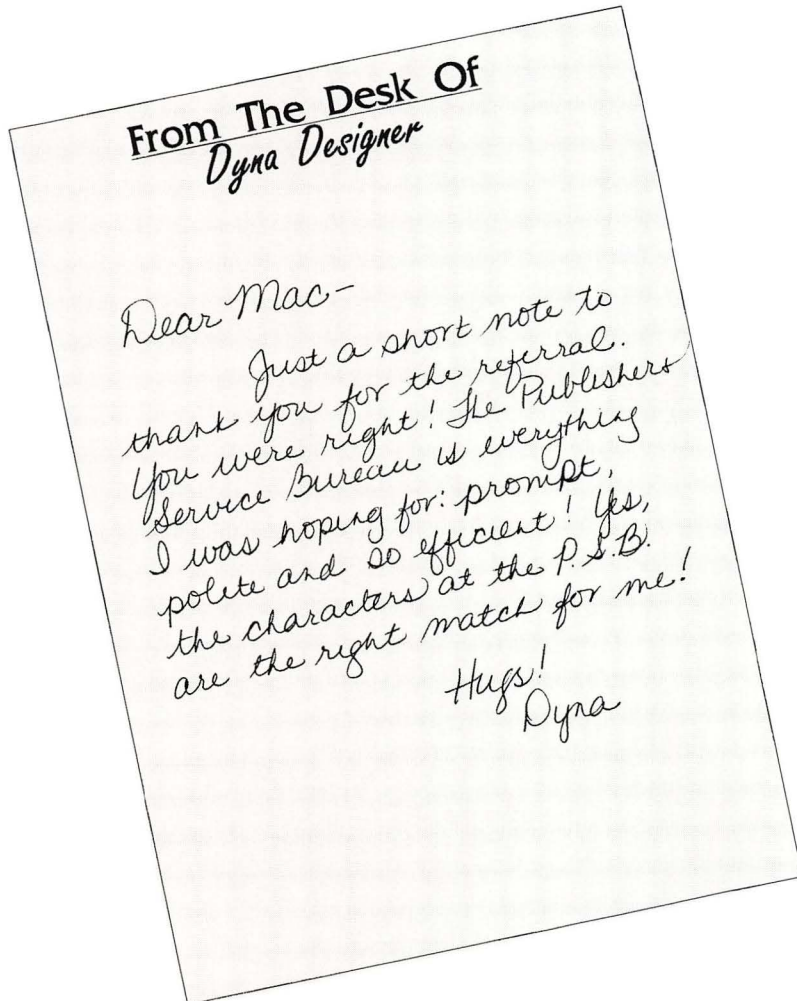 From The Desk Of
Dyna Designer
Dear Mac-
Just a short note to
thank you for the referral.
You were right! The Publishers
Service Bureau is everything
I was hoping for: prompt,
polite and so efficient! Yes,
the characters at the P.S.B.
are the right match for me!
Hugs!
Dyna